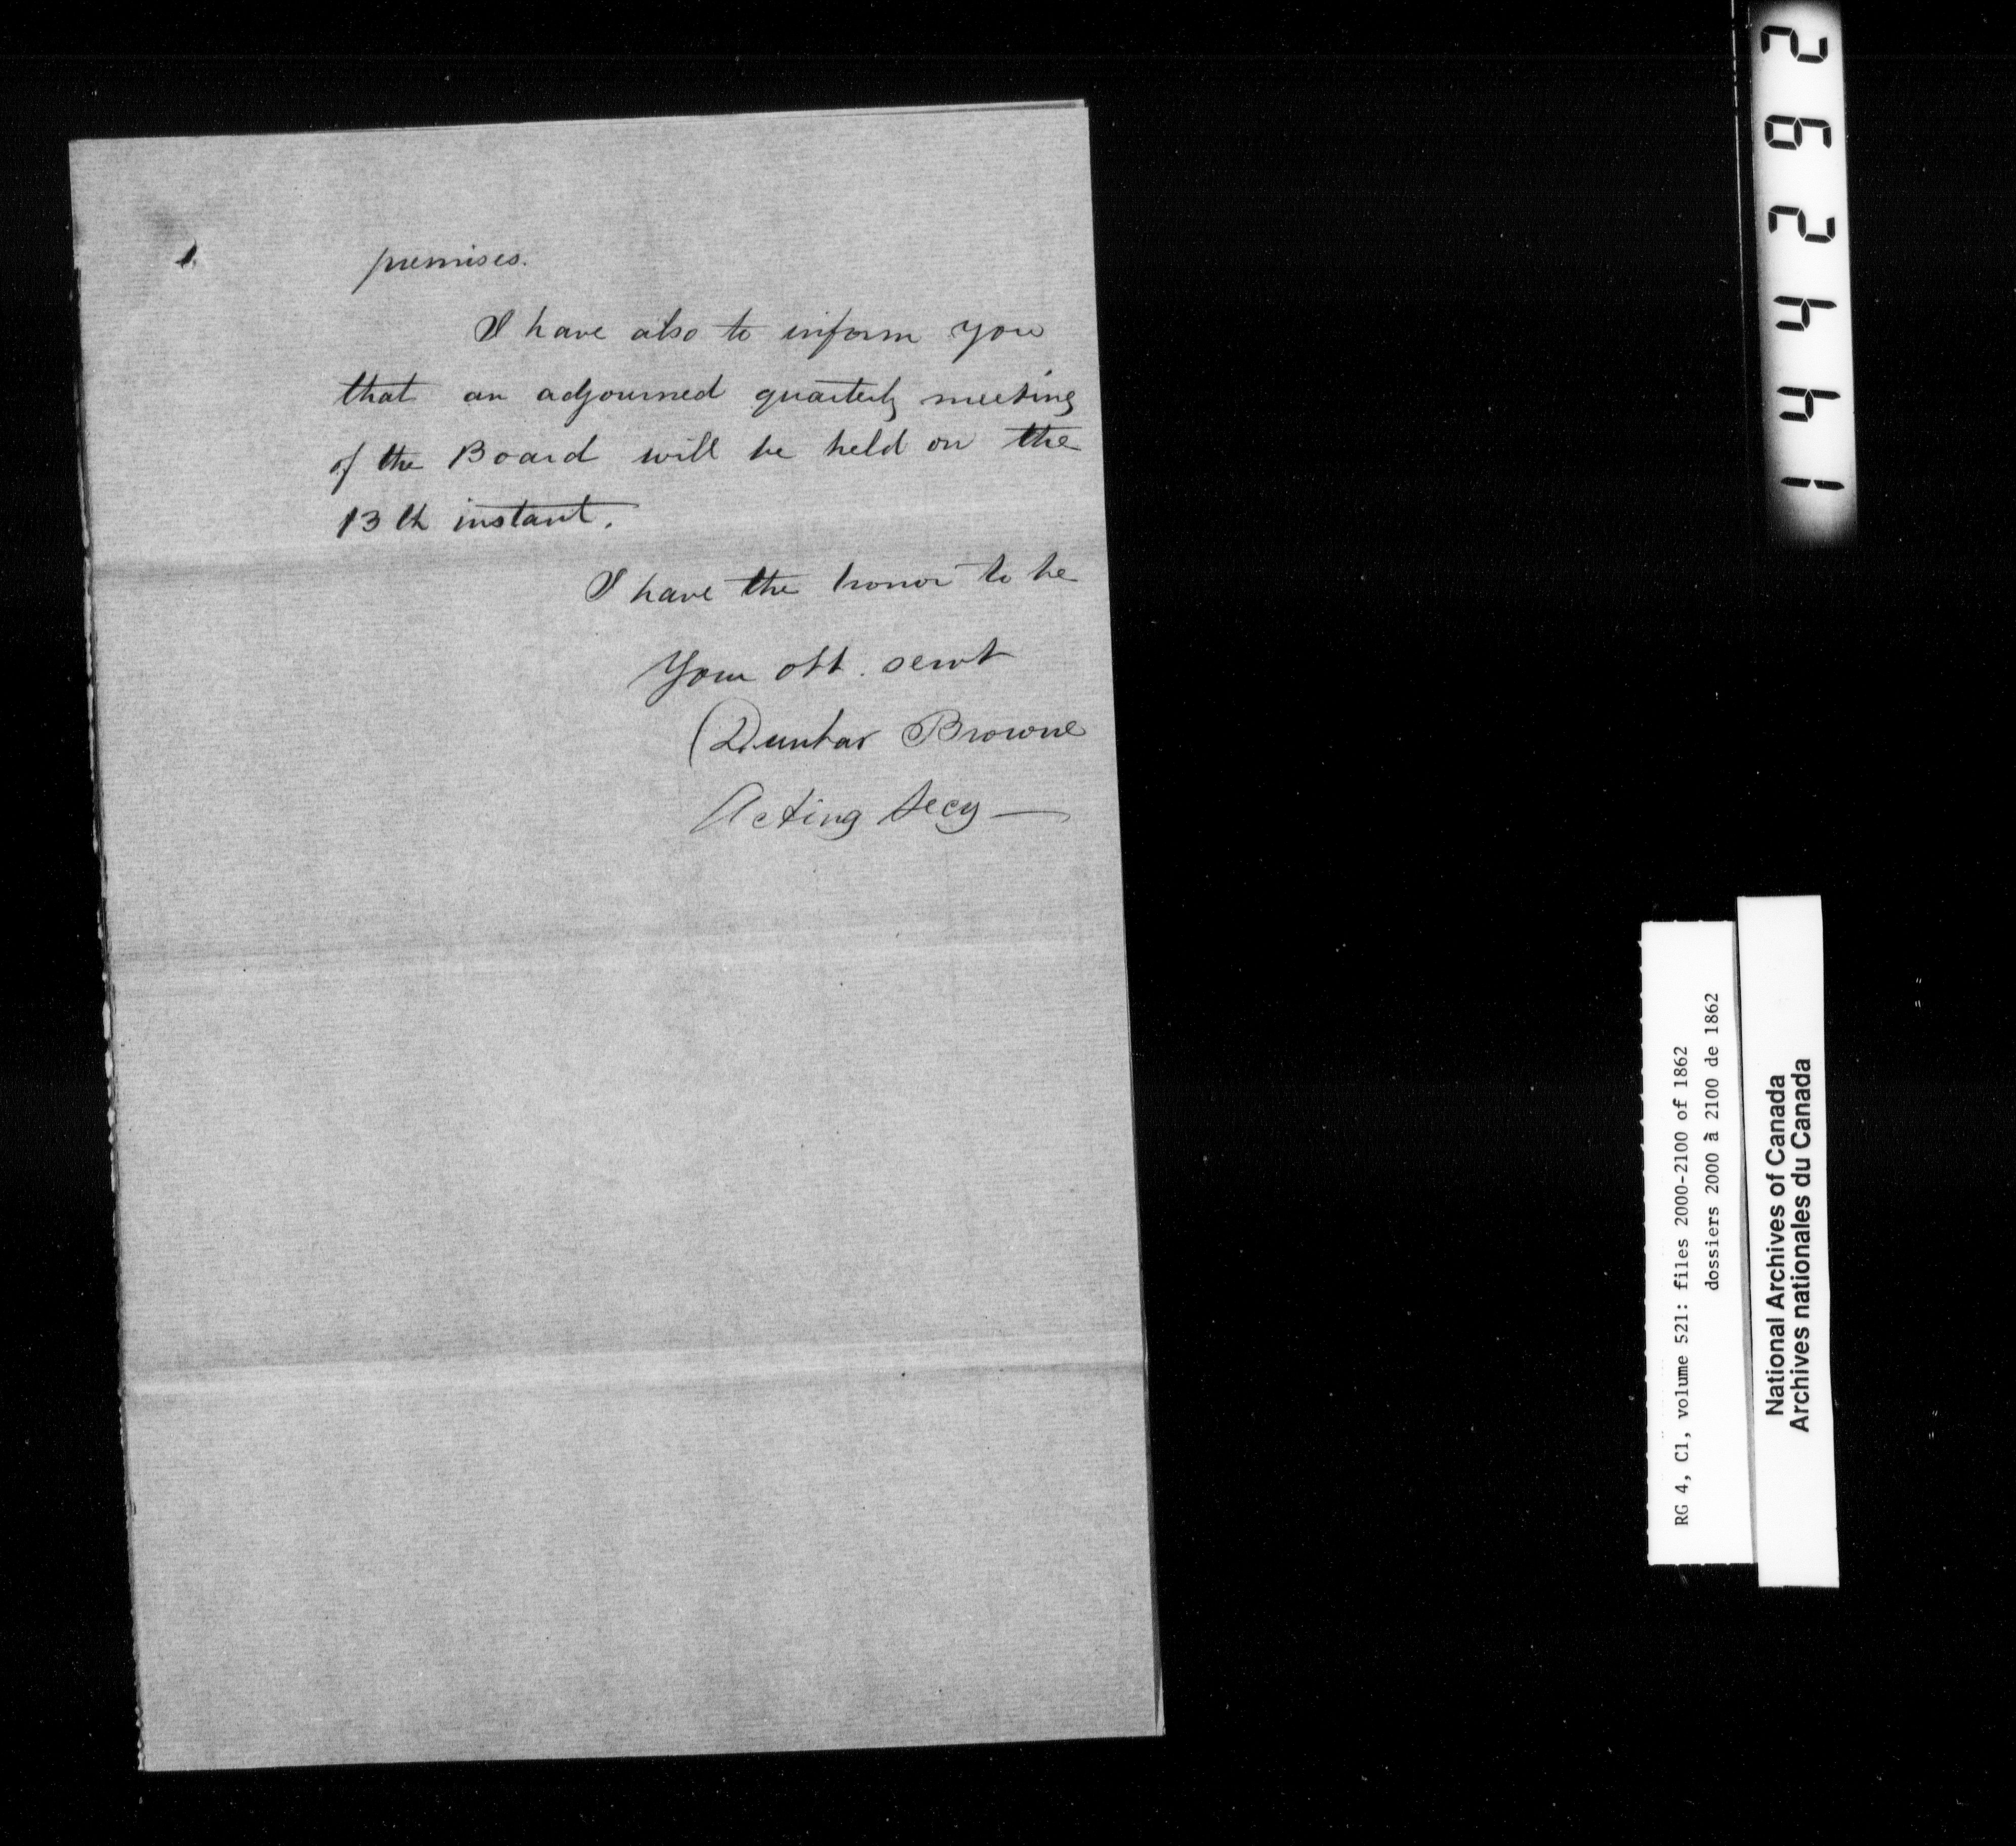 premises.
I have also to inform you
that an adjourned quarterly meeting
of the Board will be held on the
13th instant.
I have the honor to be
Your obt. servt
(Dunbar Browne
Acting Secy —
RG 4, C1, volume 521: files 2000-2100 of 1862
dossiers 2000 à 2100 de 1862
National Archives of Canada
Archives nationales du Canada